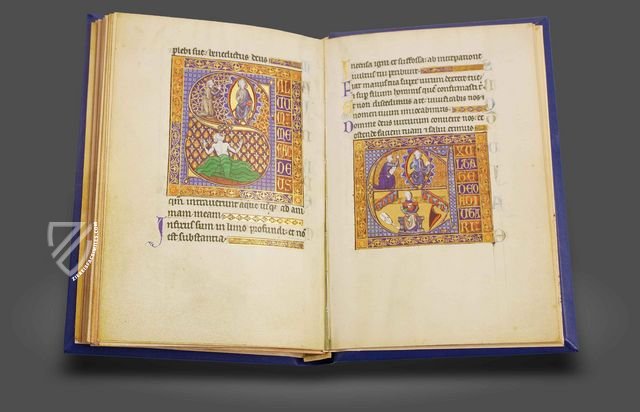 plebi sue: benedictus deus
S
AL
UUM
ME
FAC
DE
US
qm intraverunt aque usq; ad ani
mam meam.
Infixus sum in limo profundi: et nō
est substantia
Incensa igni et suffossa: ab increpatione
vultus tui peribunt
Fiat manus tua super virum dextere tue:
et sup filium hominis quem confirmasti t
Et non discedimus a te: vivificabis nos:
nomen tuum invocabimus
Domine deus virtutum converte nos: et
ostende faciem tuam et salvi erimus
E
XUL
TA
TE DEO
ADIU
TO
RI
ZIEREIS FACSIMILES.COM